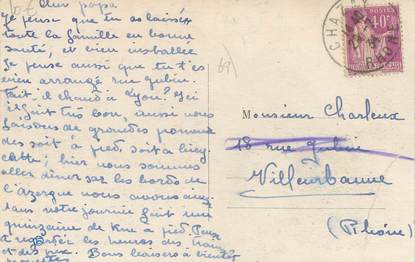 Mon papa
Je pense que tu as laissé
toute la famille en bonne
santé, et bien installée
Je pense aussi que tu t'es
bien arrangé rue Jubin.
Fait-il chaud à Lyon? Ici
il fait très bon, aussi nous
faisons de grandes promenades
soit à pied, soit à bicy-
clette; hier nous sommes
allés dîner sur les bords de
l'Azergue nous avons
dans notre journée fait une
quinzaine de Km à pied.
regarder les heures des trains
et des Bons baisers à bientôt
69)
Monsieur Charleux
18 rue Jubin
Villeurbanne
(Rhône)
CHAZAY
40c